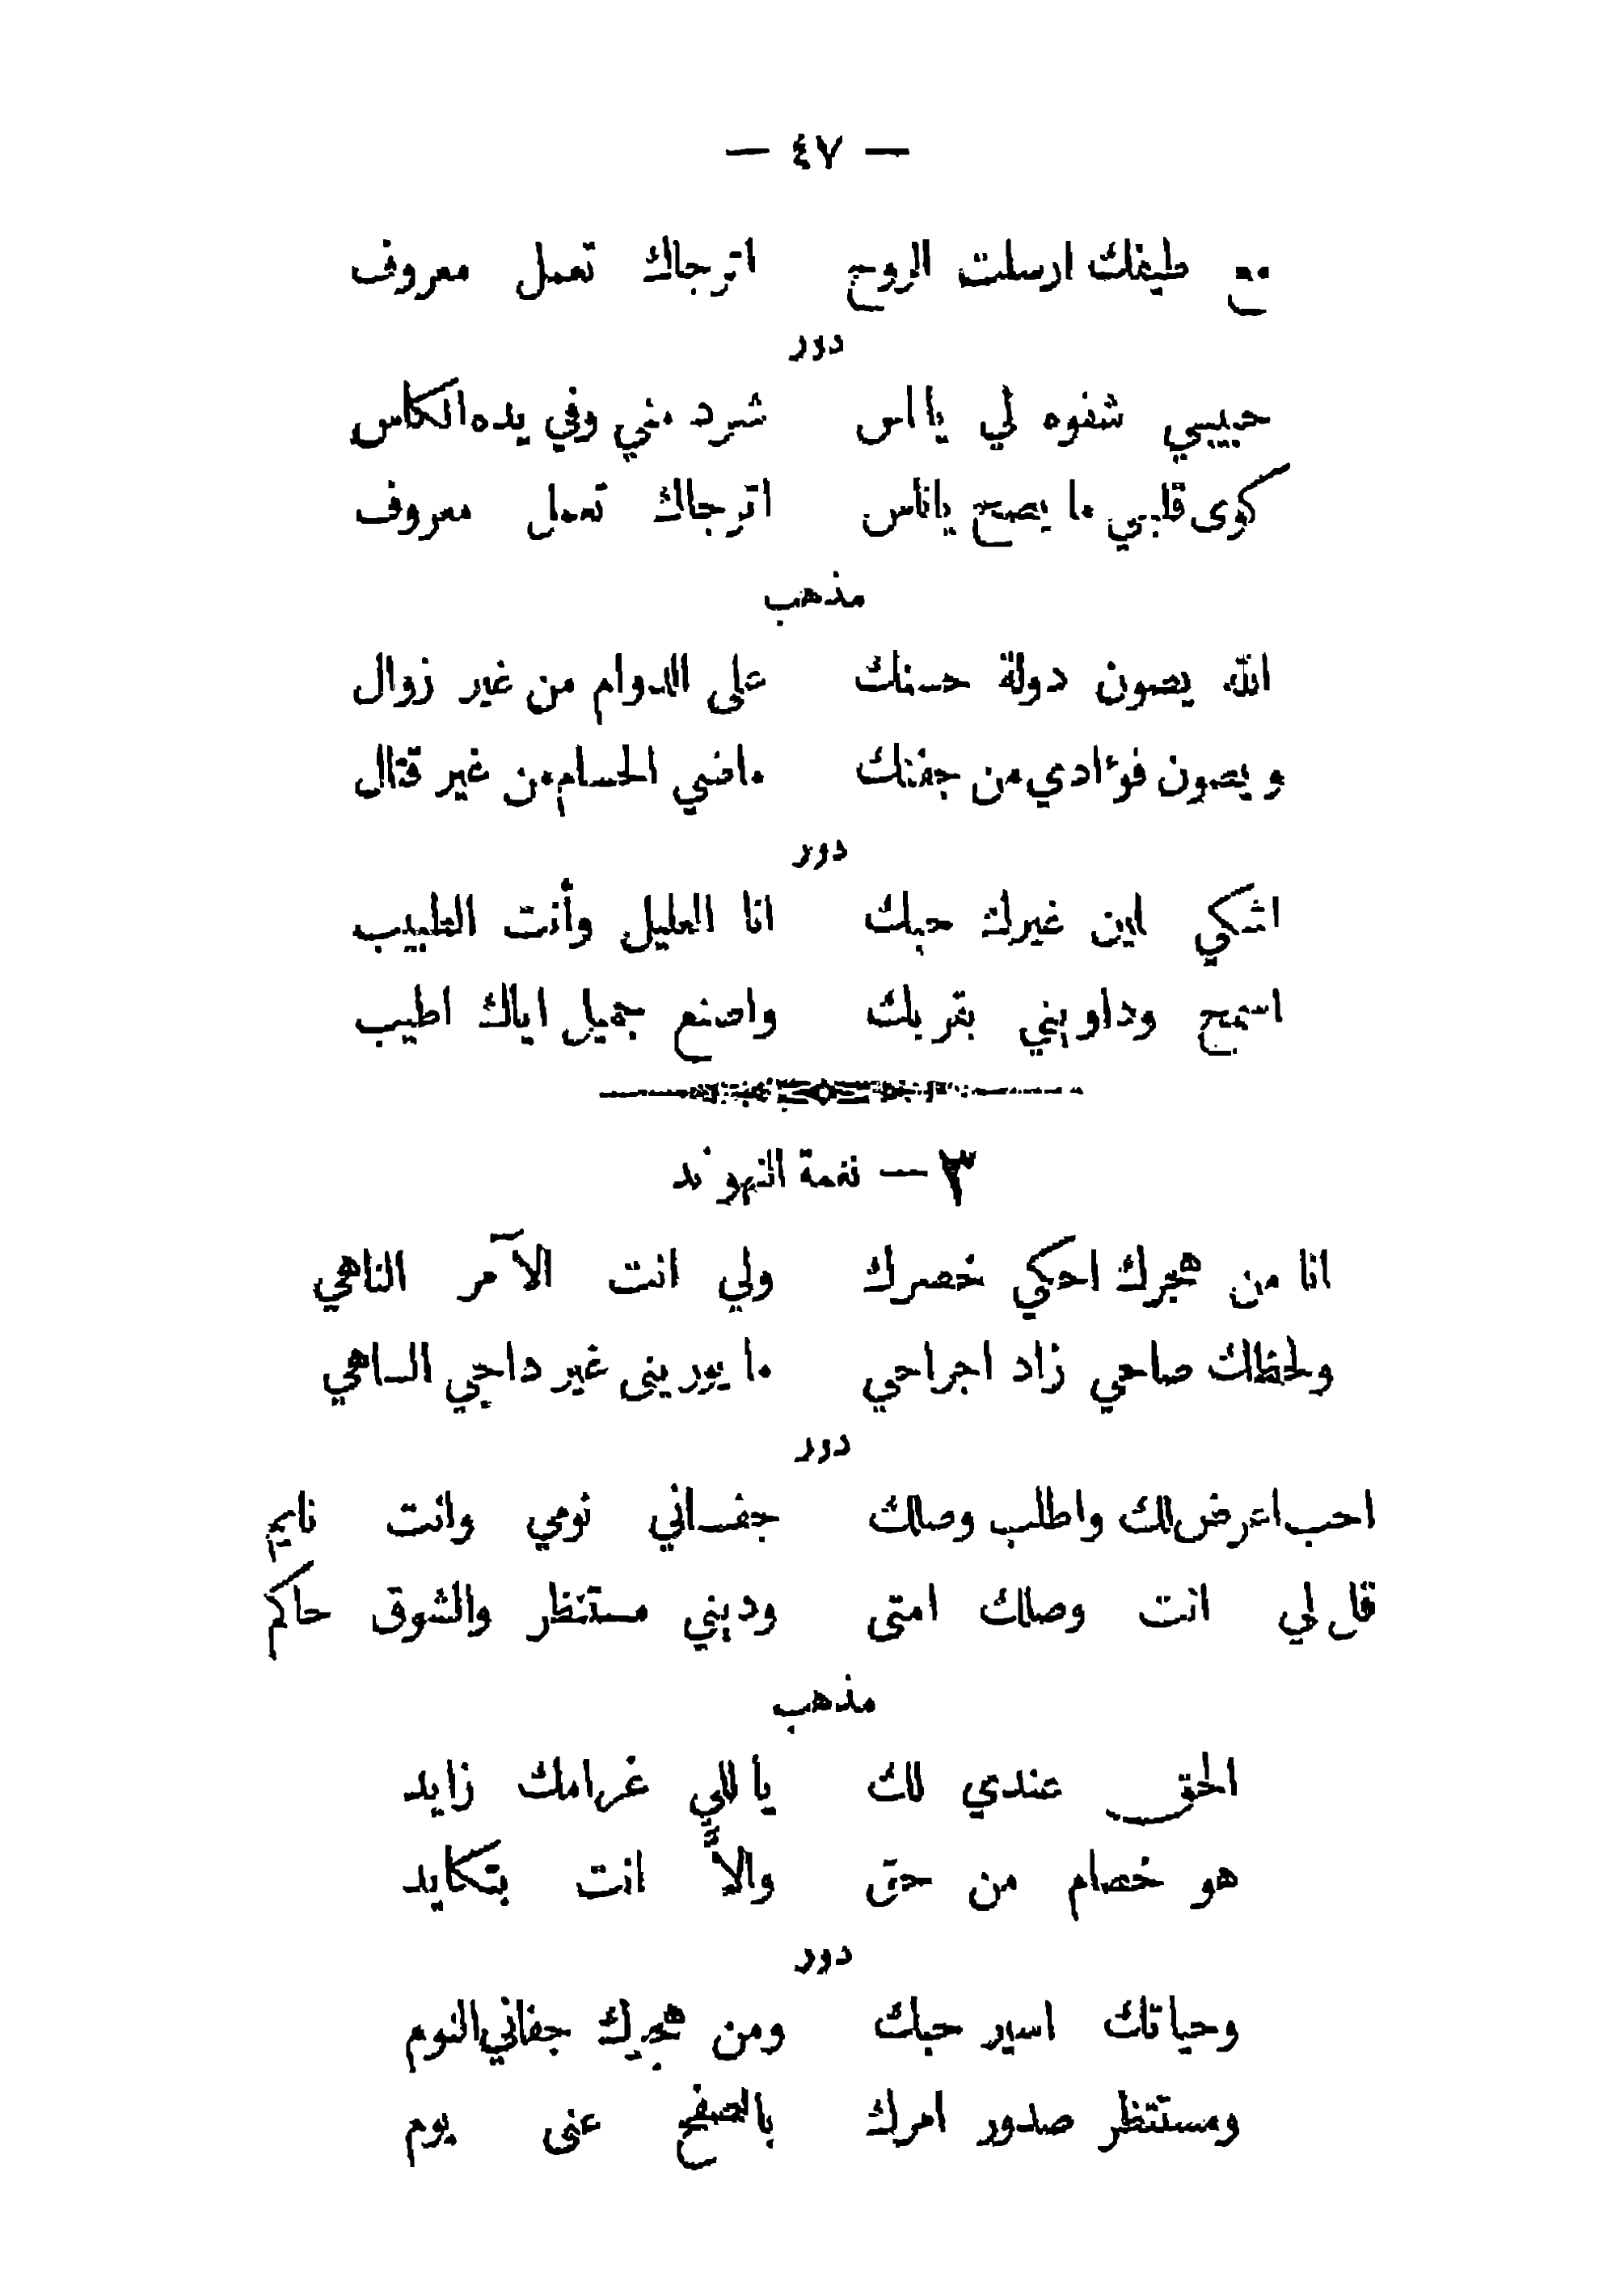 — ٤٧ —
مع طيفك ارسلت الروح اترجاك تعمل معروف
دور
حبيبي شفوه لي يا اس شرد مني وفي يده الكاس
كوى قلبي ما يصح ياناس اترجاك تعمل معروف
مذهب
الله يصون دولة حسنك على الدوام من غير زوال
ويصون فوءادي من جفنك ماضي الحسام من غير قتال
دور
اشكي لمين غيرك حبك انا العليل وأنت الطبيب
اسمح وداويني بقربك واصنع جميل اياك اطيب
٣ — نغمة النهوند
انا من هجرك احكي خصرك ولي انت الآمر الناهي
ولحظك صاحي زاد اجراحي ما يوريني غير داجي الساهي
دور
احب اعرض لك واطلب وصلك جفساني نومي وانت نايم
قال لي انت وصلك امتى وديني مستنظر والشوق حاكم
مذهب
الحق عندي لك ياللي غرامك زايد
هو خصام من حق والاَّ انت بتكايد
دور
وحياتك اسير حبك ومن هجرك جفاني النوم
ومستنظر صدور امرك بالصفح عني يوم